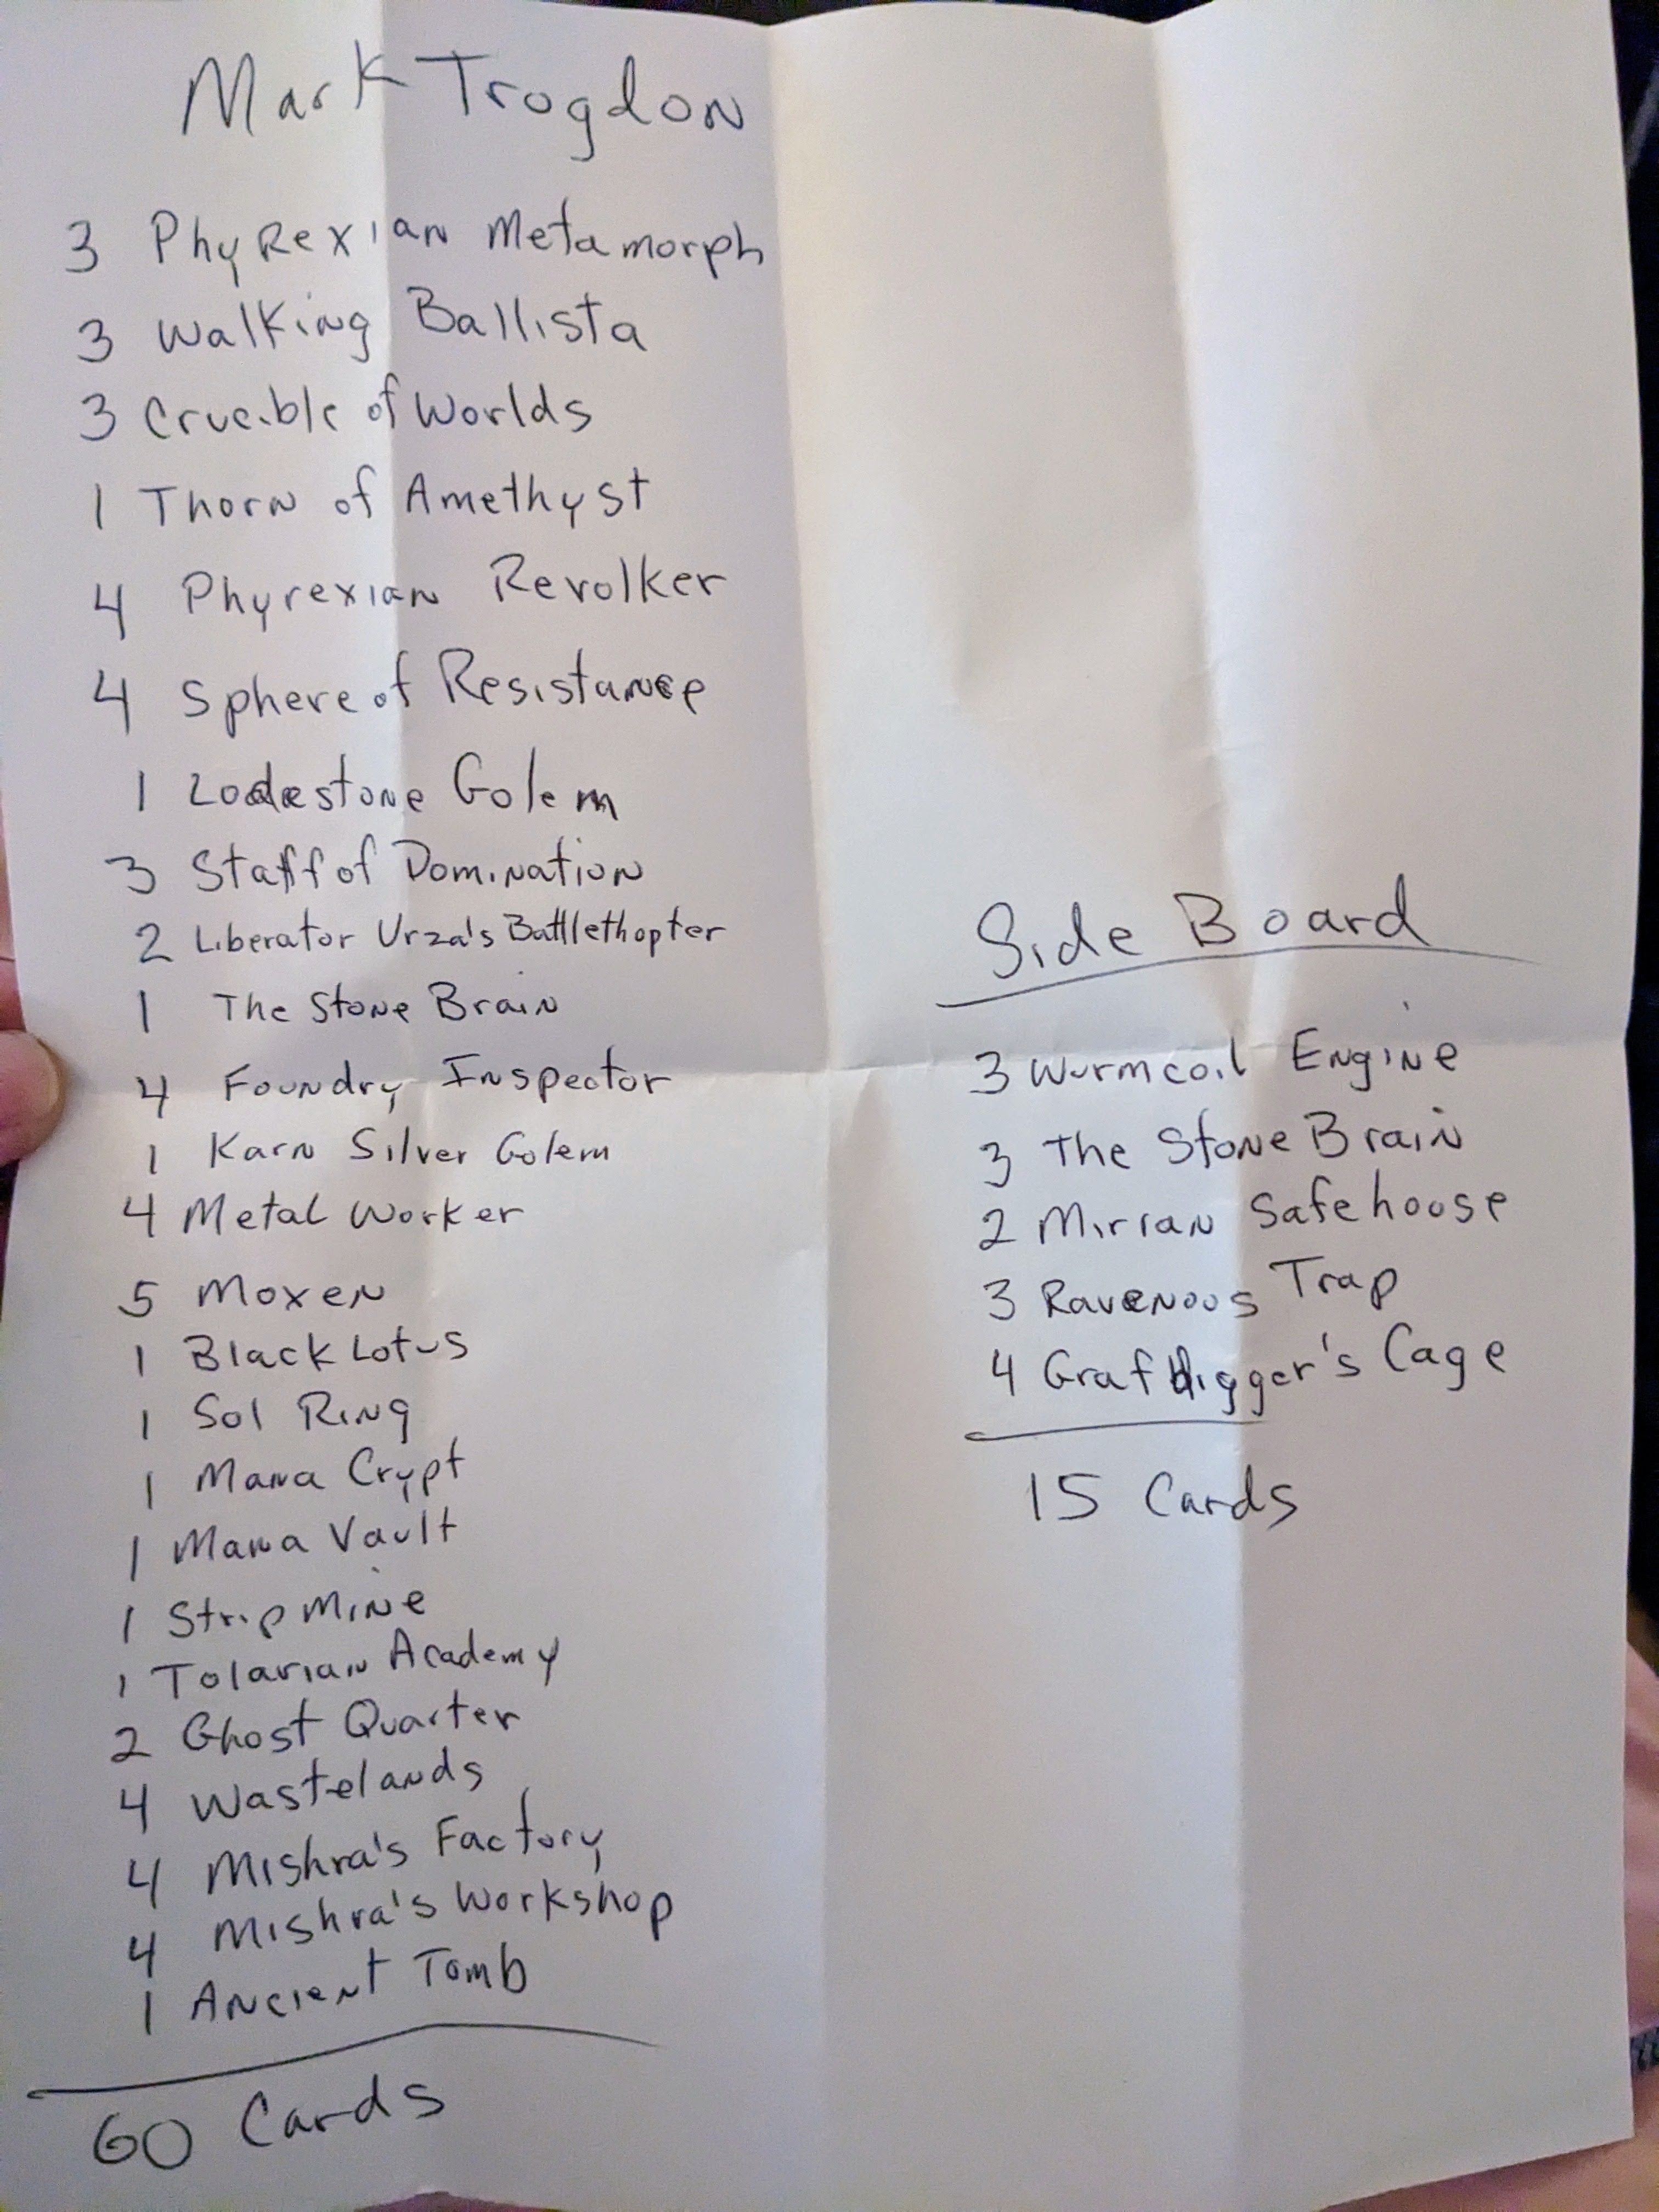 Mark Trogdon
3 Phyrexian Metamorph
3 Walking Ballista
3 Crucible of Worlds
1 Thorn of Amethyst
4 Phyrexian Revolker
4 Sphere of Resistance
1 Lodestone Golem
3 Staff of Domination
2 Liberator Urza's Battlethopter
1 The Stone Brain
4 Foundry Inspector
1 Karn Silver Golem
4 Metal Worker
5 Moxen
1 Black Lotus
1 Sol Ring
1 Mana Crypt
1 Mana Vault
1 Strip Mine
1 Tolarian Academy
2 Ghost Quarter
4 Wastelands
4 Mishra's Factory
4 Mishra's Workshop
1 Ancient Tomb
60 Cards
Side Board
3 Wurmcoil Engine
3 The Stone Brain
2 Mirran Safehouse
3 Ravenous Trap
4 Grafdigger's Cage
15 Cards